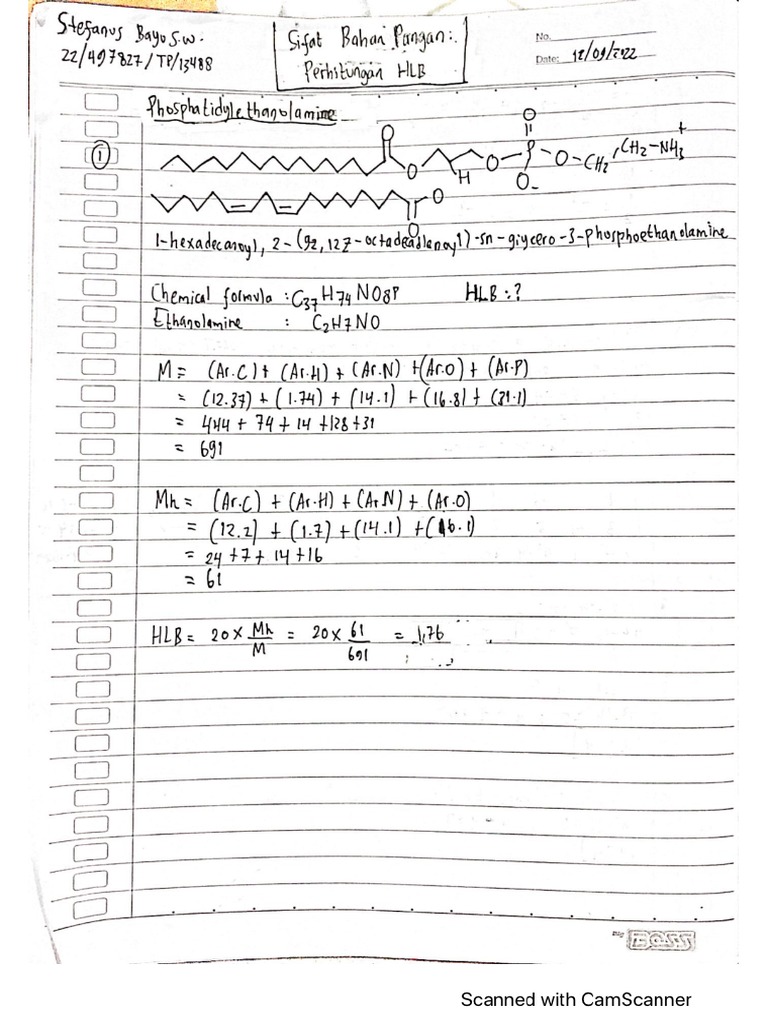 Stefanus Bayu S.W.
22/497827/TP/13488
Sifat Bahan Pangan:
Perhitungan HLB
No.
Date: 12/09/2022
Phosphatidylethanolamine
1
O O O O P O- O-CH2 CH2-NH3+
H
O O
1-hexadecanoyl, 2-(9z,12z-octadeadienoyl)-sn-glycero-3-phosphoethanolamine
Chemical formula : C37 H74 NO8P HLB :?
Ethanolamine : C2H7NO
M = (Ar.C) + (Ar.H) + (Ar.N) + (Ar.O) + (Ar.P)
= (12.37) + (1.74) + (14.1) + (16.8) + (31.1)
= 444 + 74 + 14 +128 +31
= 691
Mh = (Ar.C) + (Ar.H) + (Ar.N) + (Ar.O)
= (12.2) + (1.7) + (14.1) + (16.1)
= 24 +7 + 14 +16
= 61
HLB = 20 x Mh/M = 20 x 61/691 = 1,76
BOSS
Scanned with CamScanner